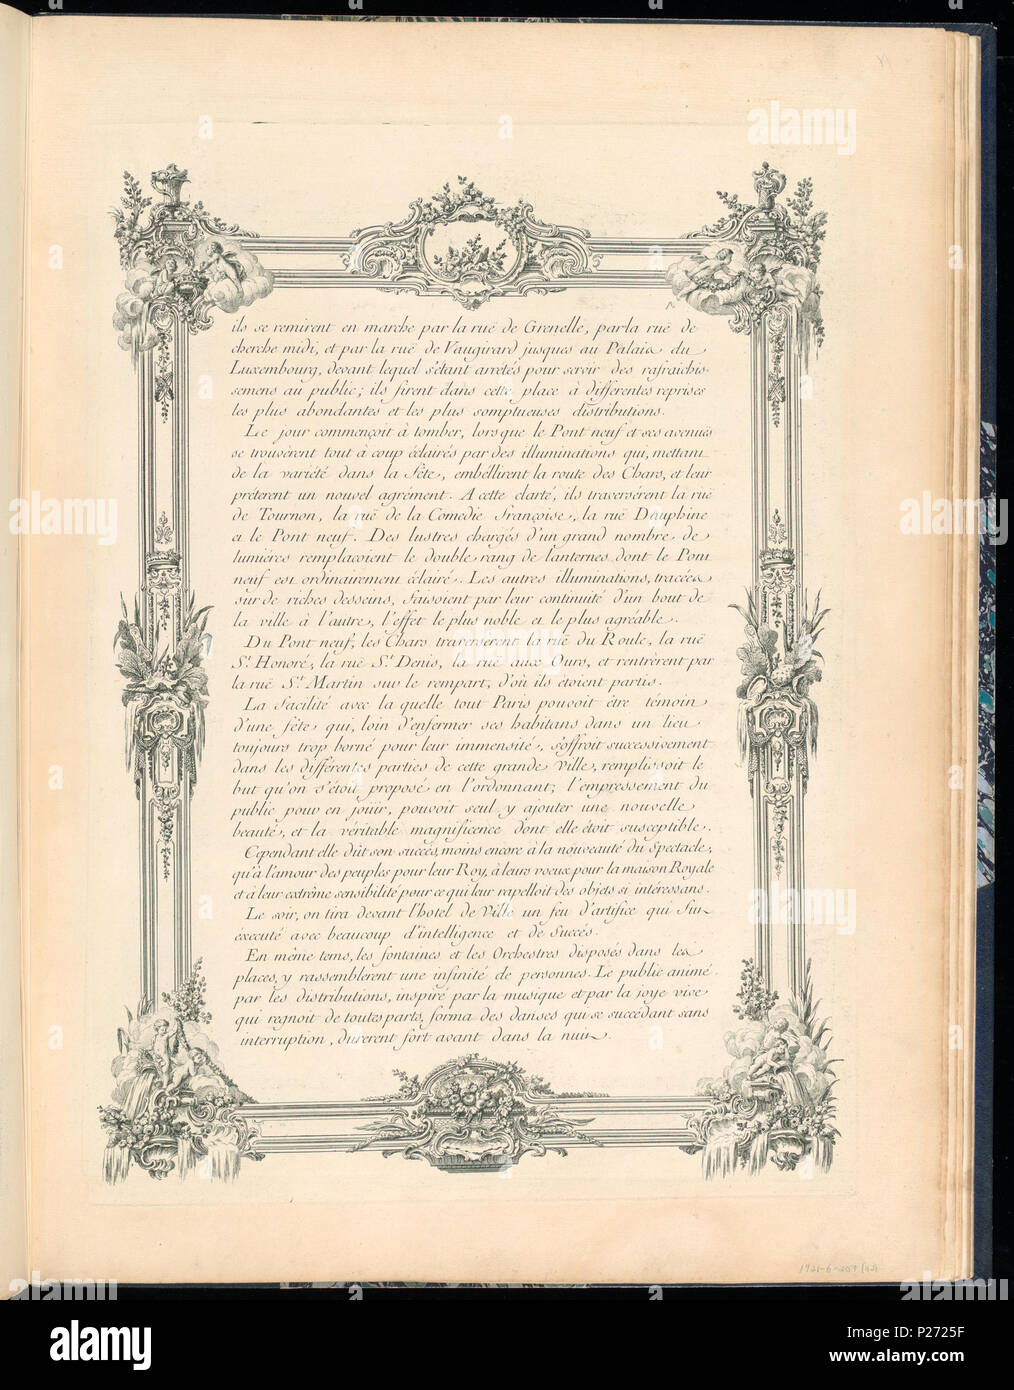 ils se remirent en marche par la ruë de Grenelle, par la ruë de
cherche midi, et par la ruë de Vaugirard jusques au Palais du
Luxembourg, devant lequel s'étant arretés pour servir des rafraichis-
semens au public; ils firent dans cette place à differentes reprises
les plus abondantes et les plus somptueuses distributions.
Le jour commençoit à tomber, lorsque le Pont neuf et ses avenues
se trouvèrent tout à coup éclairés par des illuminations qui, mettant
de la variété dans la fête, embéllirent la route des Chars, et leur
préterent un nouvel agrément. A cette clarté, ils traversérent la ruë
de Tournon, la ruë de la Comedie françoise, la ruë Dauphine
et le Pont neuf. Des lustres chargés d'un grand nombre de
lumiéres remplaçoient le double rang de lanternes dont le Pont
neuf est ordinairement éclairé. Les autres illuminations, tracées
sur de riches desseins, faisoient par leur continuité d'un bout de
la ville à l'autre, l'effet le plus noble et le plus agréable.
Du Pont neuf, les Chars traverserent la ruë du Roule, la ruë
St. Honoré, la ruë St. Denis, la ruë aux Ours, et rentrèrent par
la ruë St. Martin sur le rempart, d'où ils étoient partis.
La facilité avec la quelle tout Paris pouvoit être témoin
d'une fête qui, loin d'enfermer ses habitans dans un lieu
toujours trop borné pour leur immensité, s'offroit successivement
dans les différentes parties de cette grande ville, remplissoit le
but qu'on s'étoit proposé en l'ordonnant; l'empressement du
public pour en joüir, pouvoit seul y ajouter une nouvelle
beauté, et la véritable magnificence dont elle étoit susceptible.
Cependant elle dût son succés, moins encore à la nouveauté du Spectacle,
qu'à l'amour des peuples pour leur Roy, à leurs voeux pour la maison Royale
et à leur extrême sensibilité pour ce qui leur rapelloit des objets si intéressans.
Le soir, on tira devant l'hotel de Ville un feu d'artifice qui fut
éxecuté avec beaucoup d'intelligence et de succés.
En même tems, les fontaines et les Orchestres disposés dans les
places, y rassemblerent une infinité de personnes. Le public animé
par les distributions, inspiré par la musique et par la joye vive
qui regnoit de toutes parts, forma des danses qui se succédant sans
interruption, durerent fort avant dans la nuit.
1921-6-209 (12)
alamy
P2725F
www.alamy.com